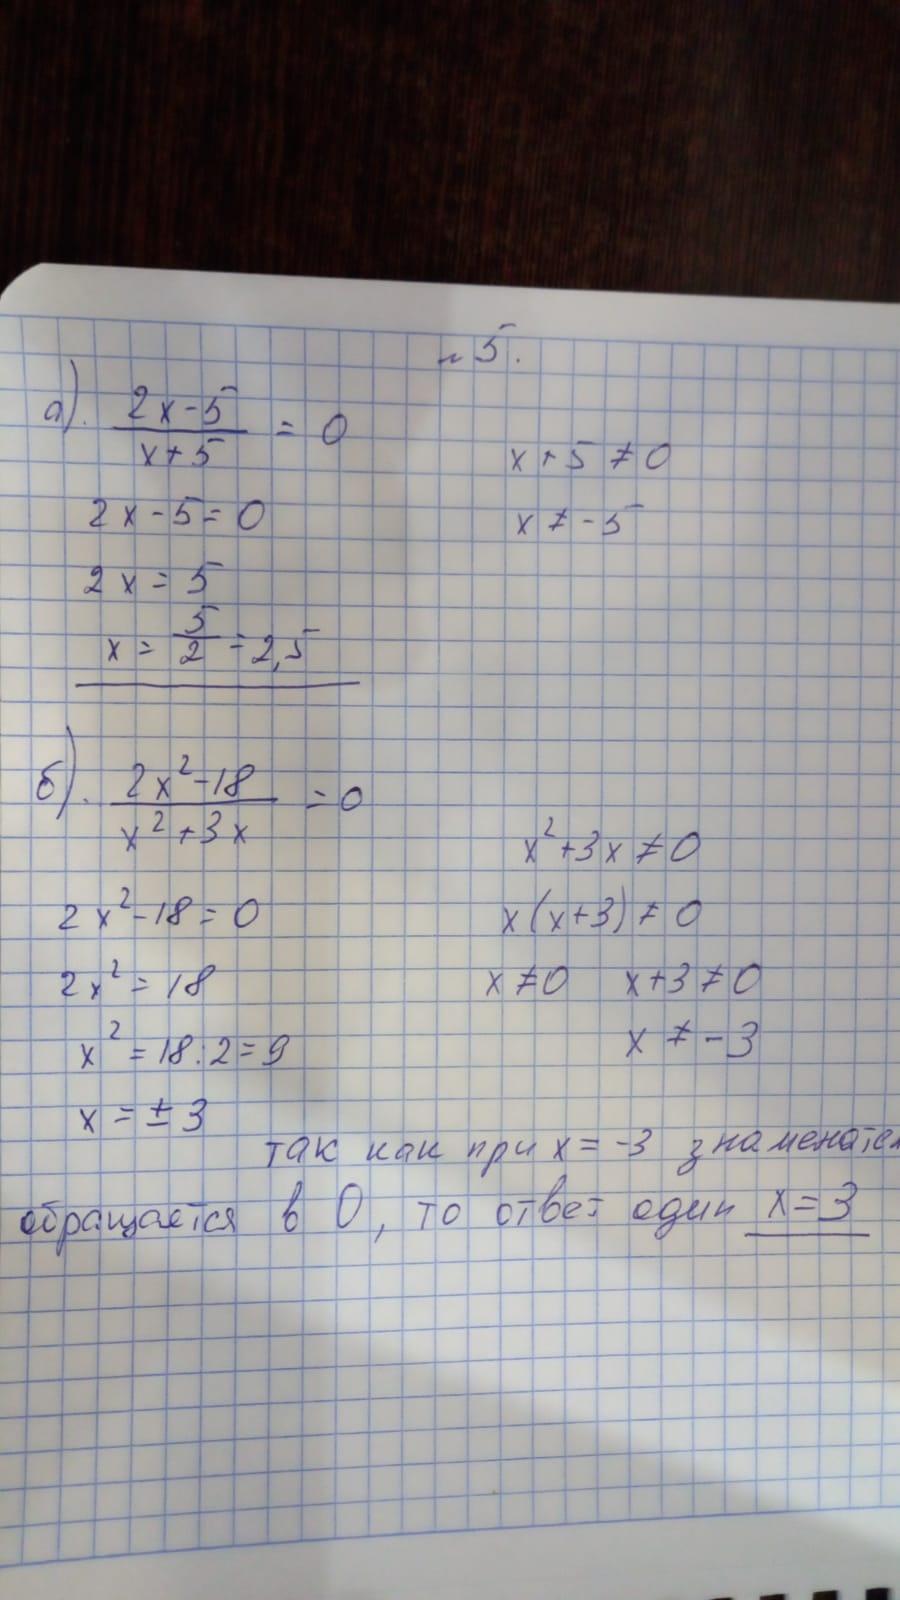 №5.
а). (2x-5)/(x+5) = 0
x+5≠0
2x-5=0
x≠-5
2x=5
x = 5/2 = 2,5
б). (2x²-18)/(x²+3x) = 0
x²+3x≠0
2x²-18=0
x(x+3)≠0
2x²=18
x≠0 x+3≠0
x²=18:2=9
x≠-3
x=±3
так как при x=-3 знаменател
обращается в 0, то ответ один x=3